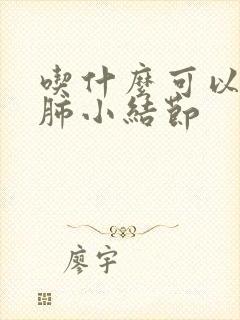 喫什麼可以
肺小結節
廖宇